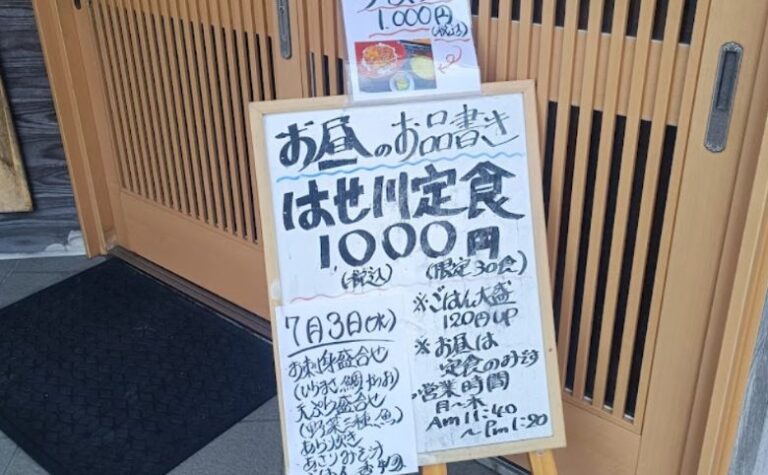 1.000円
(税込)
お昼のお品書き
はせ川定食
1000円
(税込)
(限定30食)
7月3日(水)
お刺身盛合せ
(いらまさ、鯛、かつお)
天ぷら盛合せ
(野菜三種、魚)
あら炊き
あさりみそ汁
ごはん
※ごはん大盛
120円UP
※お昼は
定食のみです
営業時間
月〜木
Am11:40
〜Pm1:20